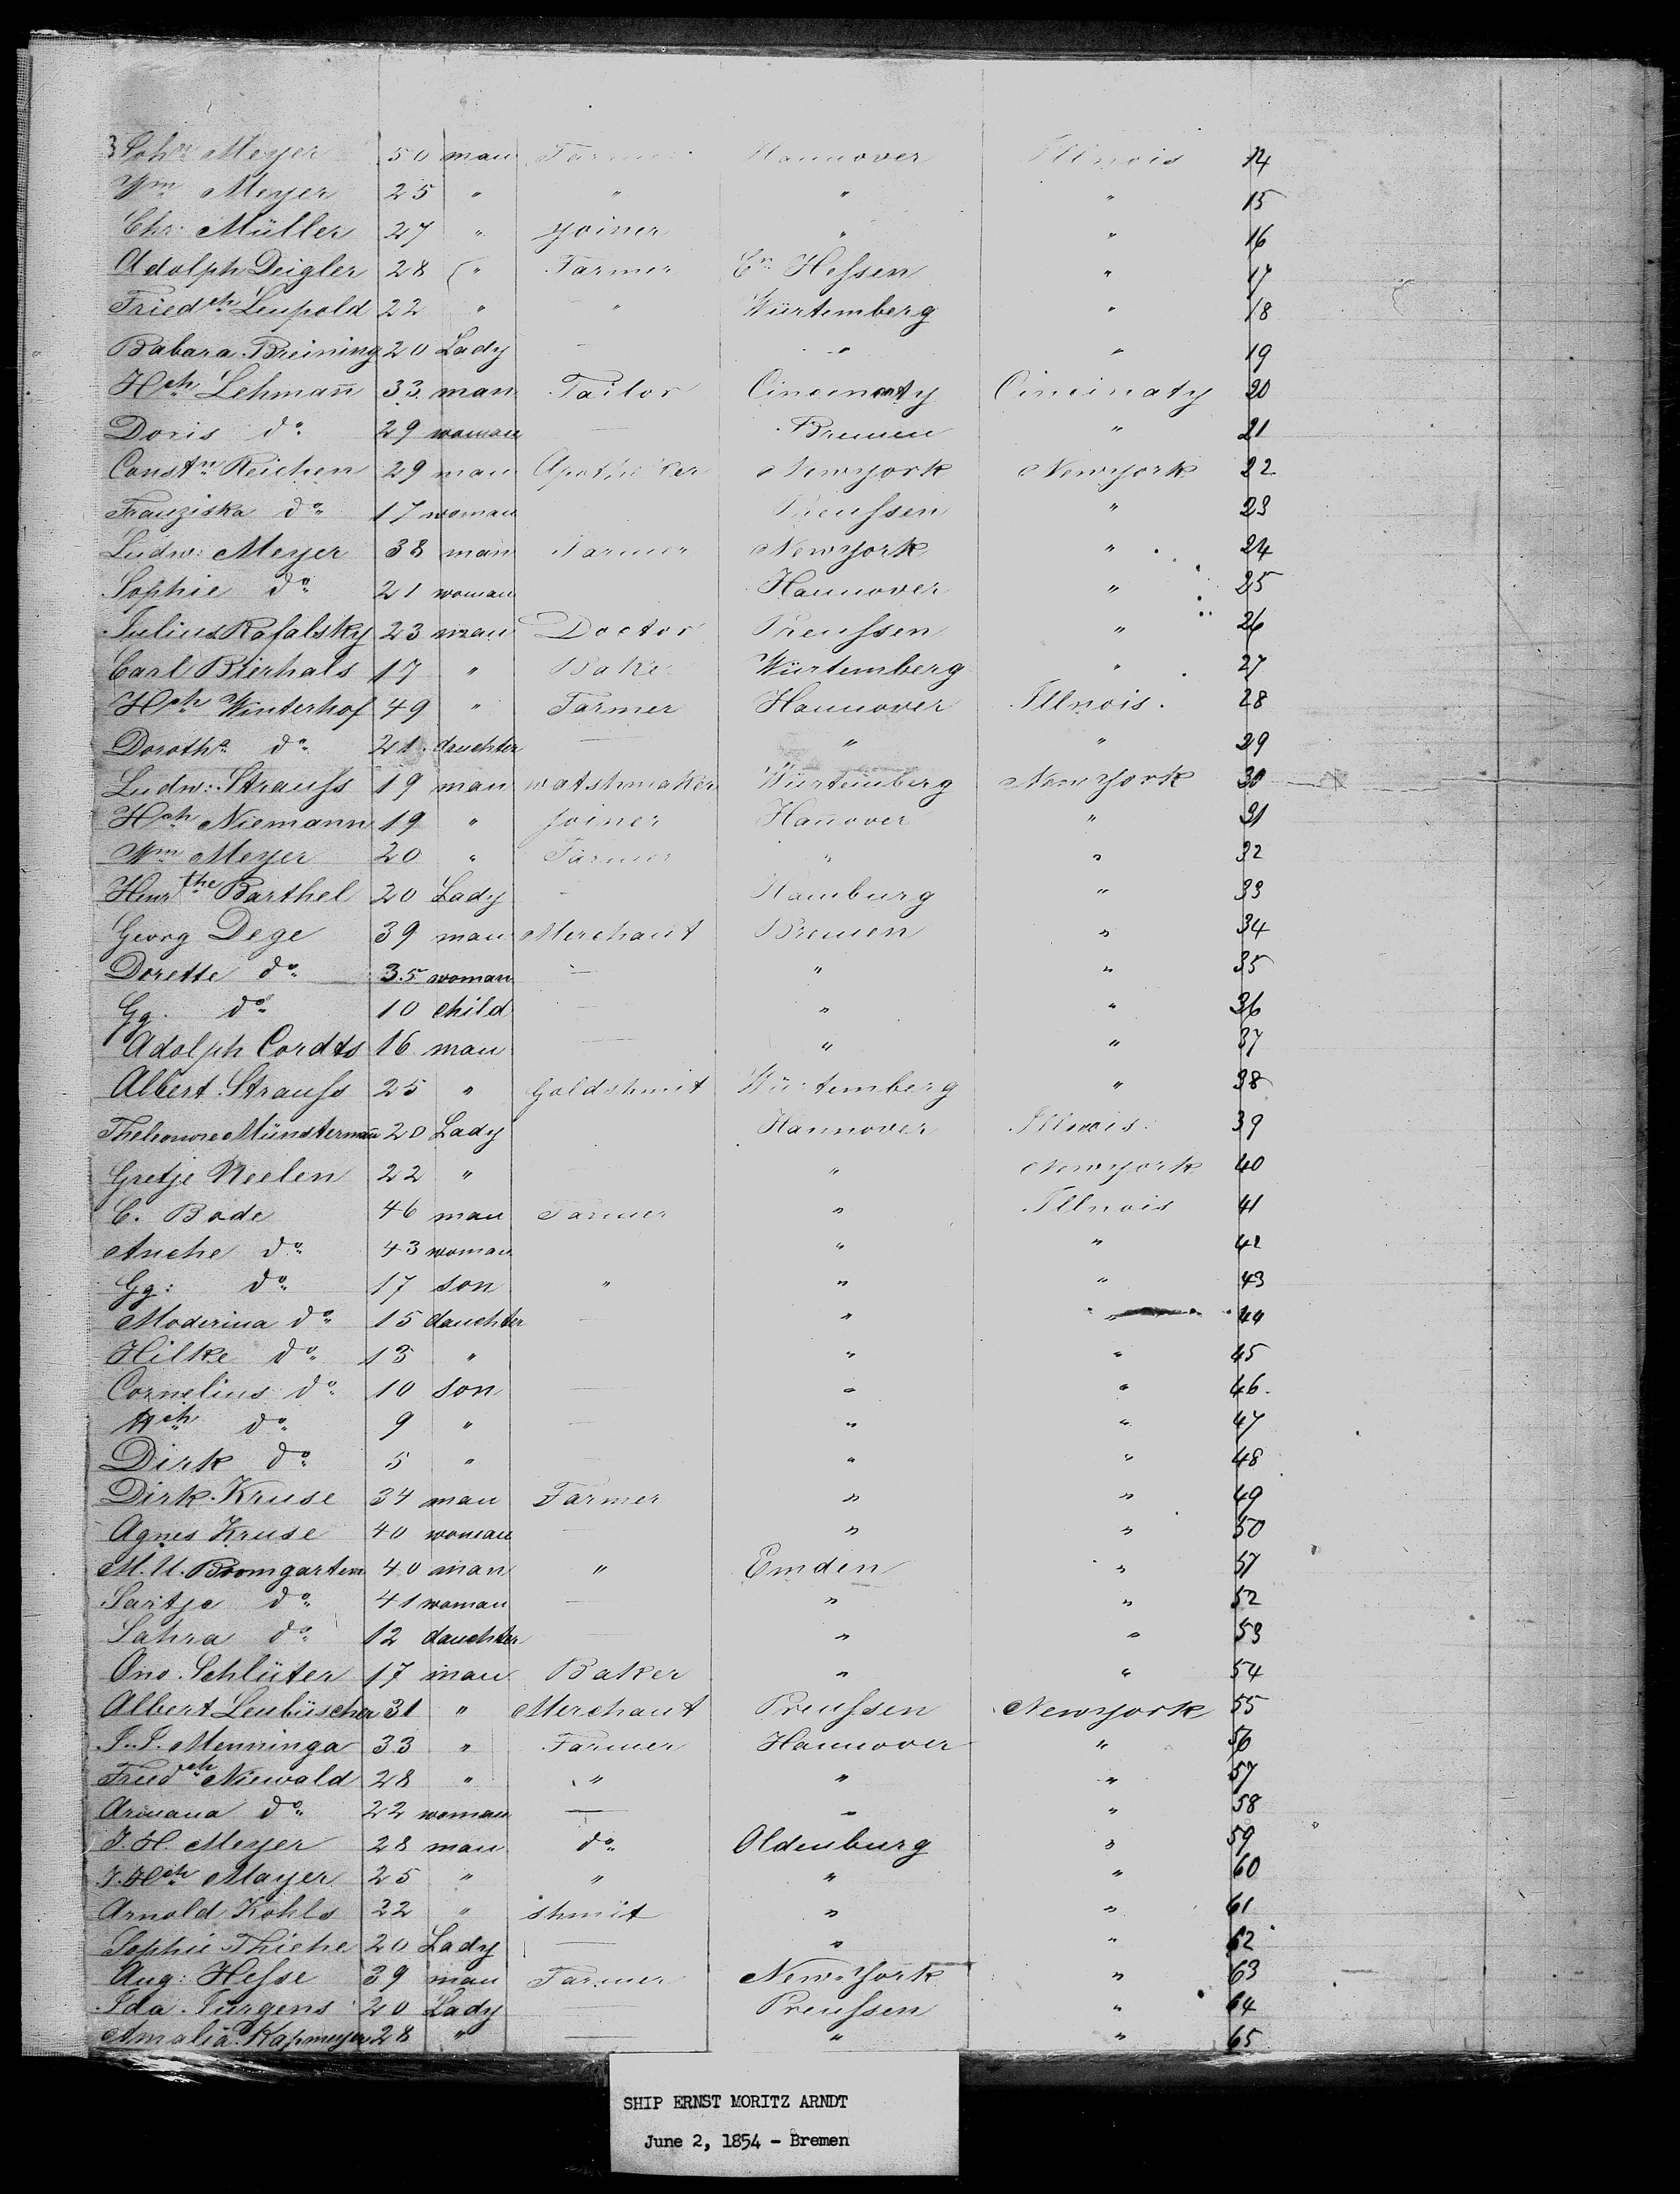 Joh.n Meyer 50 man Farmer Hannover Illnois 14
Wm Meyer 25 " " " " 15
Chr: Müller 27 " yoiner " " 16
Adolph Deigler 28 " Farmer Cr. Hessen " 17
Friedch Leupold 22 " " Würtemberg " 18
Babara Breining 20 Lady — " " 19
Hch Lehman̄ 33 man Tailor Cincinnaty Cincinaty 20
Doris do 29 woman — Bremen " 21
Constn Reichen 29 man Apotheker Newyork Newyork 22
Franziska do 17 woman Preussen " 23
Ludw: Meyer 38 man Farmer Newyork " 24
Sophie do 21 woman Hannover " 25
Julius Rafalsky 23 man Doctor Preussen " 26
Carl Bierhals 17 " Baker Würtemberg " 27
Hch Winterhof 49 " Farmer Hannover Illnois. 28
Doroth.a do 21 dauchter — " " 29
Ludw: Strauss 19 man watshmaker Würtemberg Newyork 30
Hch Niemann 19 " joiner Han̄over " 31
Wm Meyer 20 " Farmer " " 32
Henrthe Barthel 20 Lady — Hamburg " 33
Georg Dege 39 man Merchant Bremen " 34
Dorette do 35 woman — " " 35
Gg. do 10 child — " " 36
Adolph Cordts 16 man — " " 37
Albert Strauss 25 " Goldshmit Würtemberg " 38
Theleonore Münsterman̄ 20 Lady Hannover Illnois. 39
Gretje Neelen 22 " " Newyork 40
C. Bode 46 man Farmer " Illnois 41
Anche do 43 woman " " 42
Gg: do 17 son " " " 43
Moderina do 15 dauchter — " " 44
Hilke do 13 " " " 45
Cornelius do 10 son — " " 46.
Hch do 9 " — " " 47
Dirk do 5 " " " 48
Dirk Kruse 34 man Farmer " " 49
Agnes Kruse 40 woman — " " 50
M. U. Bomgarten 40 man " Emden " 51
Sartje do 41 woman — " " 52
Sahra do 12 dauchter — " " 53
Ono Schlüter 17 man Baker " " 54
Albert Leubüscher 31 " Merchant Preussen Newyork 55
J. J. Menninga 33 " Farmer Hannover " 56
Friedch Niewald 28 " " " " 57
Armana do 22 woman — " " 58
J. H. Meyer 28 man do Oldenburg " 59
J. Hch Mayer 25 " " " " 60
Arnold Kohls 22 " shmit " " 61
Sophie Thiehe 20 Lady — " " 62
Aug: Hesse 39 man Farmer New-York " 63
Ida Jurgens 20 Lady Preussen " 64
Amalia Kapmeyer 28 " — " " 65
SHIP ERNST MORITZ ARNDT
June 2, 1854 - Bremen